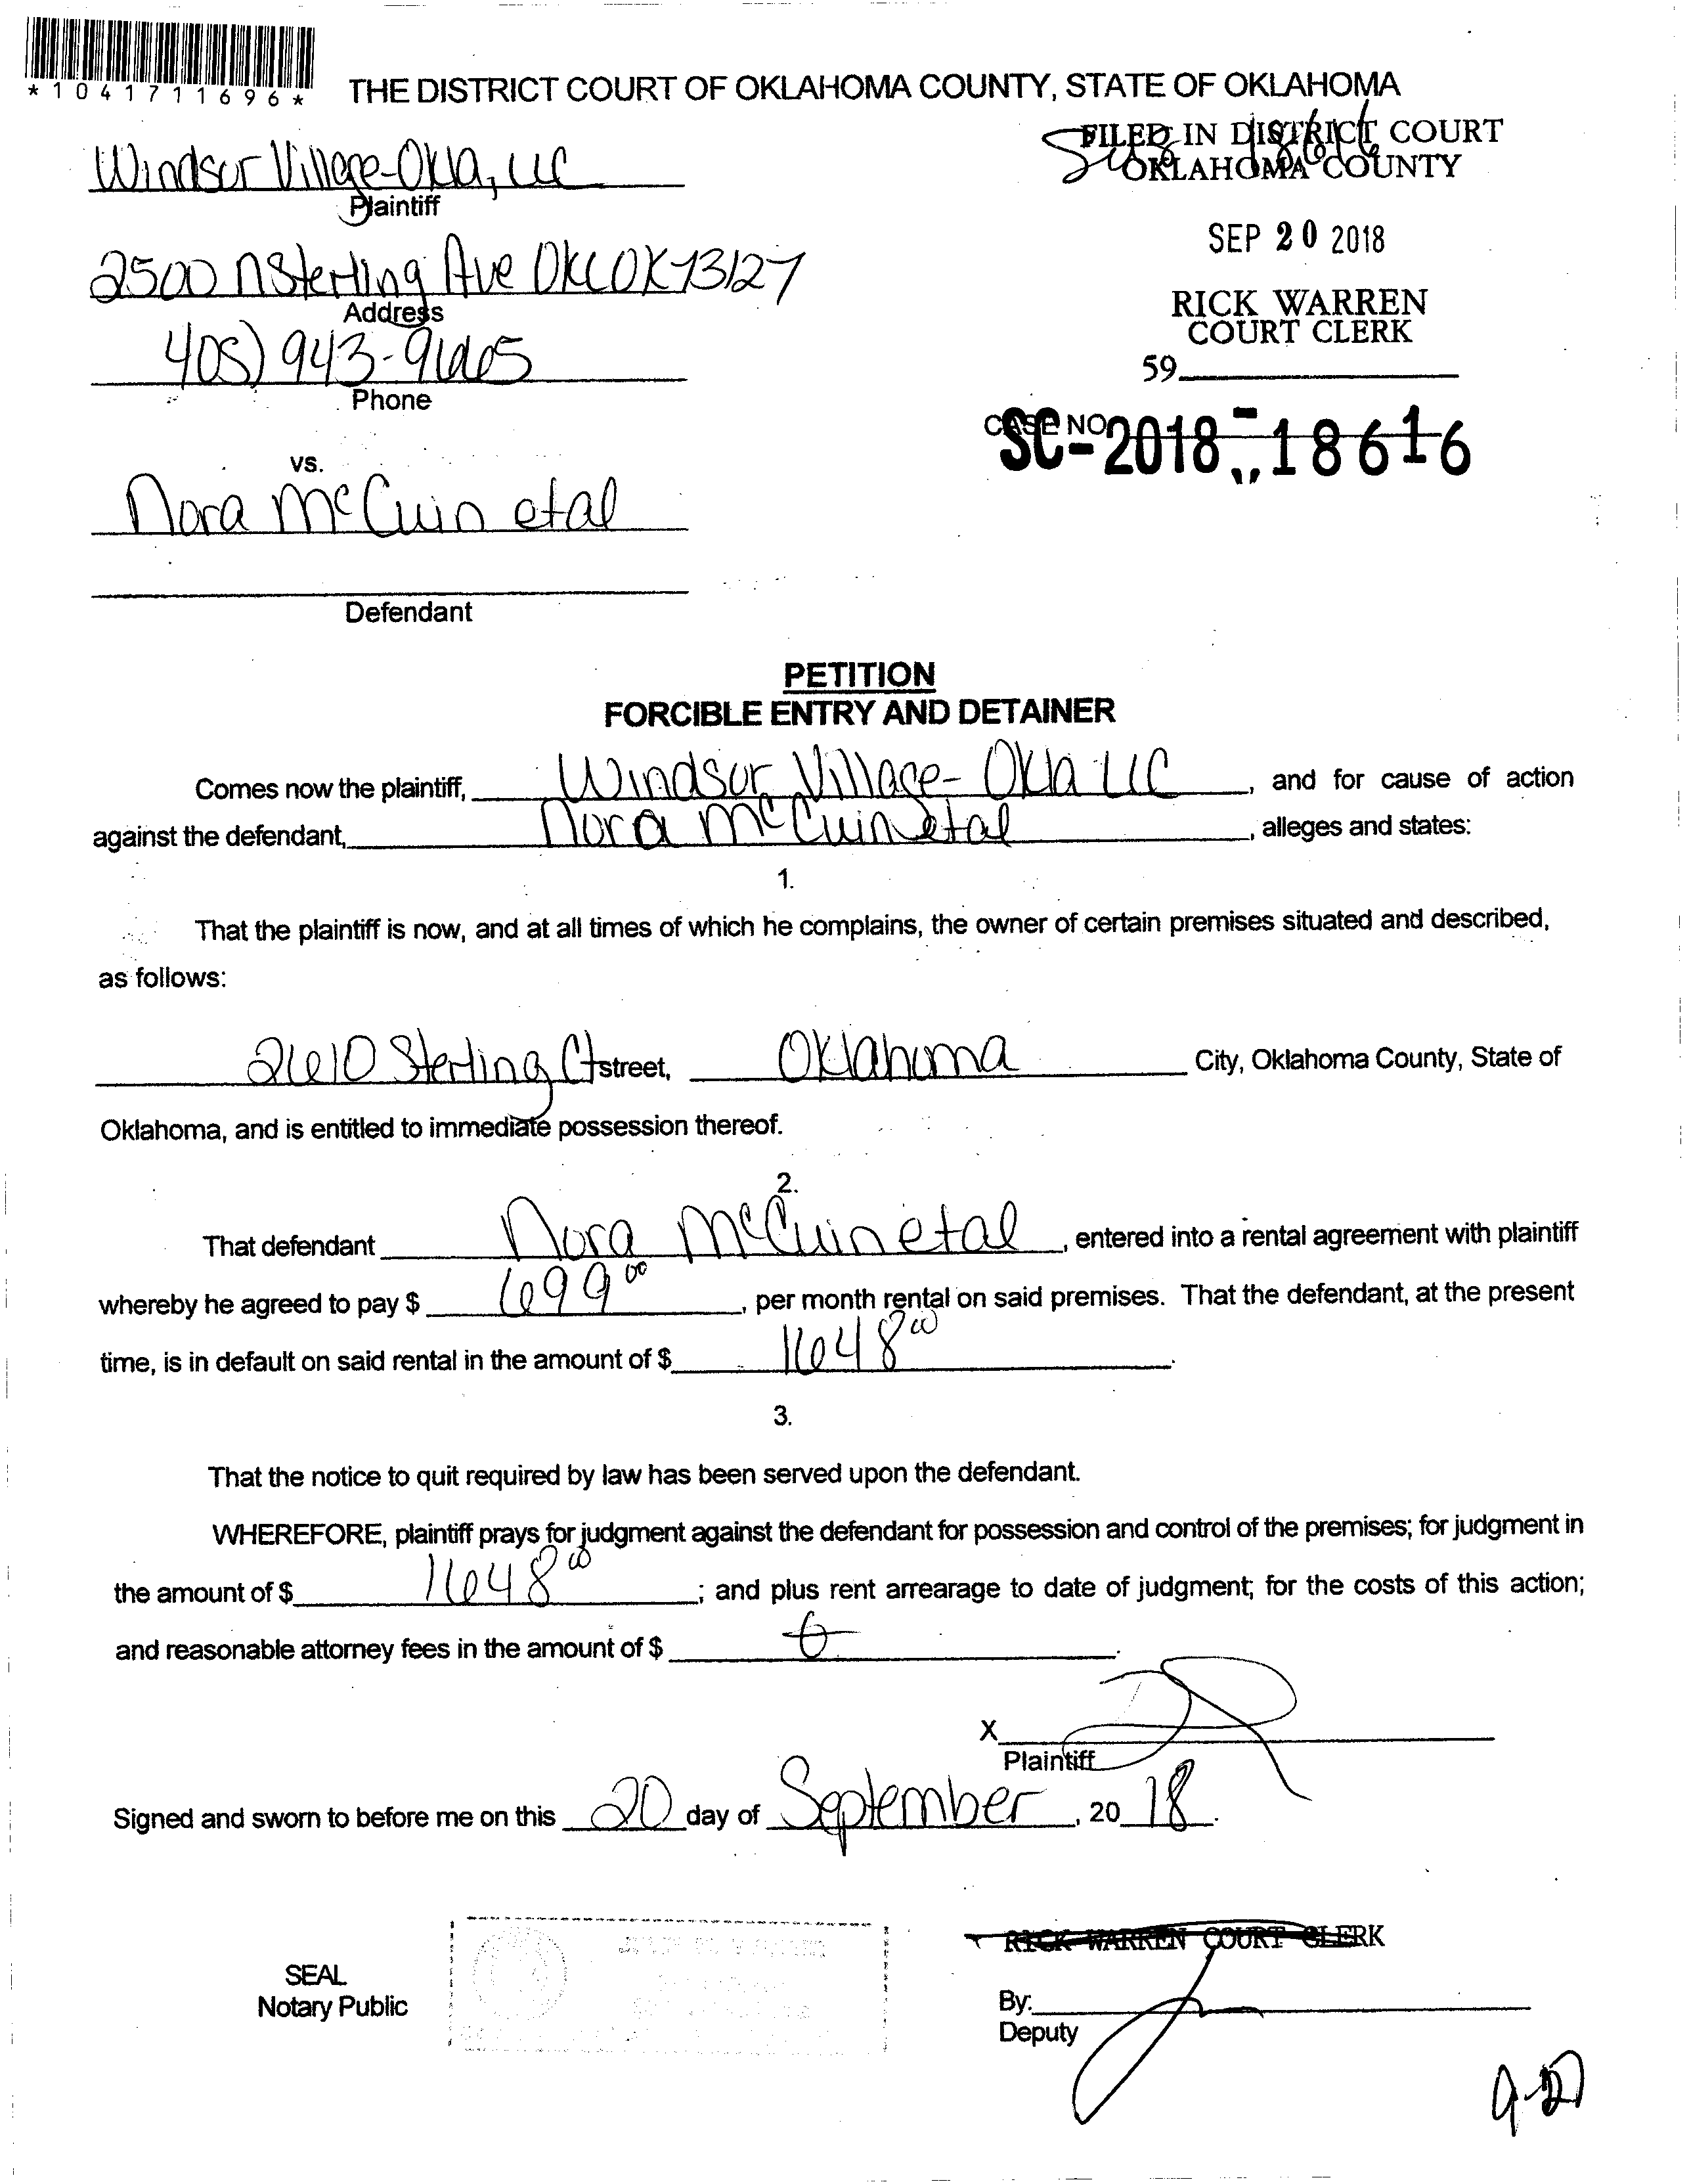 *1041711696*
THE DISTRICT COURT OF OKLAHOMA COUNTY, STATE OF OKLAHOMA
FILED IN DISTRICT COURT
OKLAHOMA COUNTY
SEP 20 2018
RICK WARREN
COURT CLERK
59
CASE NO
SC-2018-18616
Windsor Village-Okla, LLC
Plaintiff
2500 N Sterling Ave OKC OK 73127
Address
405) 943-9665
Phone
vs.
Nora McCuin etal
Defendant
PETITION
FORCIBLE ENTRY AND DETAINER
Comes now the plaintiff, Windsor Village-Okla LLC, and for cause of action
against the defendant, Nora McCuin etal, alleges and states:
1.
That the plaintiff is now, and at all times of which he complains, the owner of certain premises situated and described,
as follows:
2610 Sterling Ct street, Oklahoma City, Oklahoma County, State of
Oklahoma, and is entitled to immediate possession thereof.
2.
That defendant Nora McCuin etal, entered into a rental agreement with plaintiff
whereby he agreed to pay $ 699 00, per month rental on said premises. That the defendant, at the present
time, is in default on said rental in the amount of $ 1648 00.
3.
That the notice to quit required by law has been served upon the defendant.
WHEREFORE, plaintiff prays for judgment against the defendant for possession and control of the premises; for judgment in
the amount of $ 1648 00; and plus rent arrearage to date of judgment; for the costs of this action;
and reasonable attorney fees in the amount of $
X
Plaintiff
Signed and sworn to before me on this 20 day of September, 2018.
SEAL
Notary Public
RICK WARREN COURT CLERK
By:
Deputy